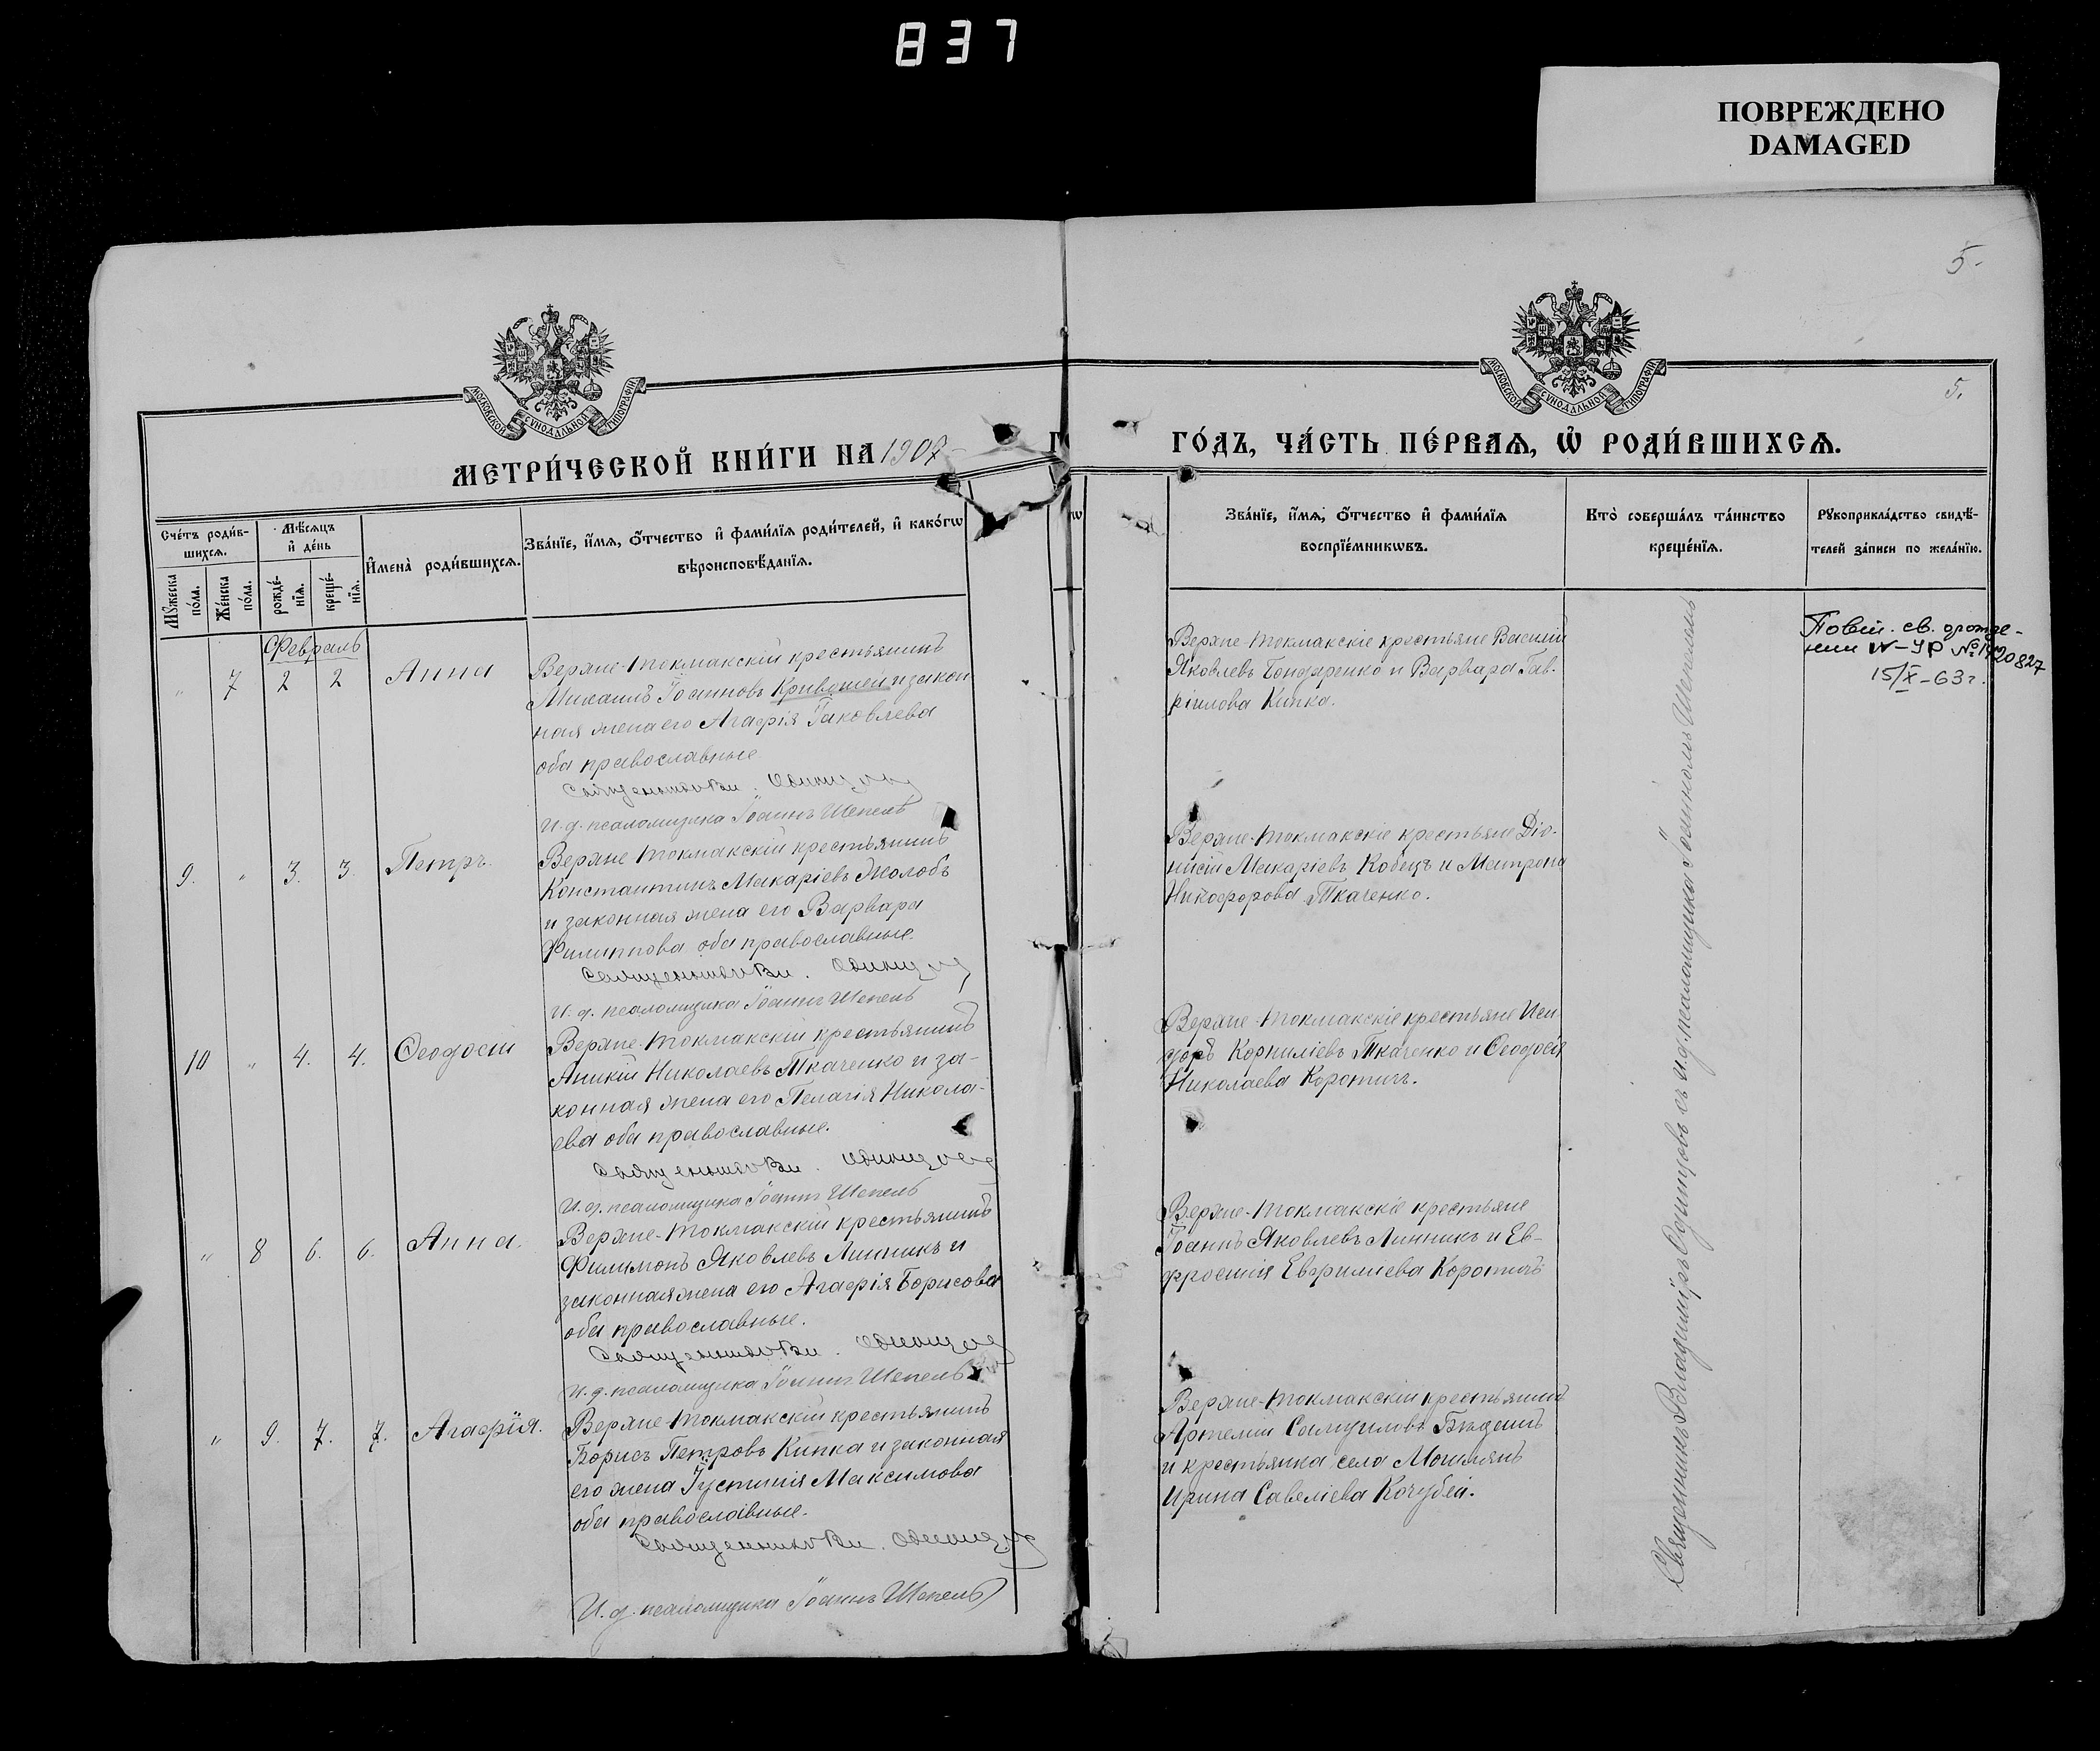 837
ПОВРЕЖДЕНО
DAMAGED
5.
МОСКОВСКОЙ СѴНОДАЛЬНОЙ ТИПОГРАФІИ
МОСКОВСКОЙ СѴНОДАЛЬНОЙ ТИПОГРАФІИ
5.
МЕТРИ́ЧЕСКОЙ КНИ́ГИ НА 1907
ГО́ДЪ, ЧА́СТЬ ПЕ́РВАѦ, Ѡ҆ РОДИ́ВШИХСѦ.
Сче́тъ роди́в-
шихсѧ.
Мꙋжеска по́ла.
Же́нска по́ла.
Мѣ́сяцъ
и҆ де́нь
рожде́-
нїѧ.
креще́-
нїѧ.
И҆мена̀ роди́вшихсѧ.
Зва́нїе, и҆́мѧ, ѻ҆́тчество и҆ фами́лїѧ роди́телей, и҆ како́гѡ
вѣроисповѣ́данїѧ.
Зва́нїе, и҆́мѧ, ѻ҆́тчество и҆ фами́лїѧ
воспрїе́мникѡвъ.
Кто̀ соверша́лъ та́инство
креще́нїѧ.
Рꙋкоприкла́дство свидѣ́-
телей за́писи по жела́нїю.
Февраль
" 7 2 2 Анна
Верхне-Токмакскій крестьянинъ
Михаилъ Іоанновъ Кривошеи и закон
ная жена его Агафія Іаковлева
оба православные.
Священникъ Вл. Одинцовъ
И. д. псаломщика Іоаннъ Шепель
Верхне-Токмакскіе крестьяне Василій
Яковлевъ Бондаренко и Варвара Гав-
ріилова Кипка.
Повт. св. о рожде-
нии IV-УР № 1420827
15/X-63 г.
9. " 3. 3. Петръ
Верхне Токмакскій крестьянинъ
Константинъ Макаріевъ Жолобъ
и законная жена его Варвара
Филиппова оба православные.
Священникъ Вл. Одинцовъ
И. д. псаломщика Іоаннъ Шепель
Верхне-Токмакскіе крестьяне Діо-
нисій Макаріевъ Кобецъ и Матрона
Никифорова Ткаченко.
10 " 4. 4. Ѳеодосій
Верхне-Токмакскій крестьянинъ
Аникій Николаевъ Ткаченко и за-
конная жена его Пелагія Никола-
ева оба православные.
Священникъ Вл. Одинцовъ
И. д. псаломщика Іоаннъ Шепель
Верхне-Токмакскіе крестьяне Иси-
доръ Корниліевъ Ткаченко и Ѳеодосія
Николаева Коротичъ.
" 8 6. 6. Анна.
Верхне-Токмакскій крестьянинъ
Филимонъ Яковлевъ Линникъ и
законная жена его Агафія Борисова
оба православные.
Священникъ Вл. Одинцовъ
И. д. псаломщика Іоаннъ Шепель
Верхне-Токмакскіе крестьяне
Іоаннъ Яковлевъ Линникъ и Ев-
фросинія Евфиміева Коротичъ
" 9. 7. 7. Агафія.
Верхне-Токмакскій крестьянинъ
Борисъ Петровъ Кипка и законная
его жена Іустинія Максимова
оба православные.
Священникъ Вл. Одинцовъ
И. д. псаломщика Іоаннъ Шепель
Верхне-Токмакскій крестьянинъ
Артемій Самуиловъ
и крестьянка села
Ирина Савеліева Кочубей.
Священникъ Владиміръ Одинцовъ съ и. д. псаломщика Іоанномъ Шепелемъ